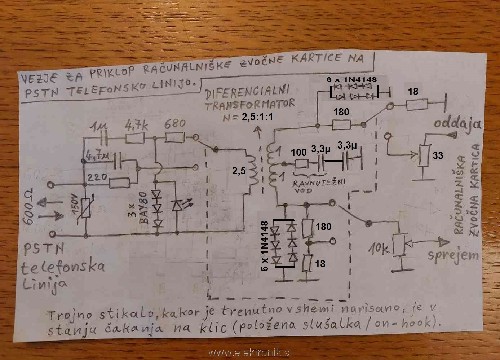 VEZJE ZA PRIKLOP RAČUNALNIŠKE ZVOČNE KARTICE NA
PSTN TELEFONSKO LINIJO.
DIFERENCIALNI
TRANSFORMATOR
N= 2,5:1:1
6 x 1N4148
18
180
oddaja
33
1μ
4,7k
680
4,7μ
220
2,5
1
1
100
3,3μ
3,3μ
RAVNOTEŽNI
VOD
RAČUNALNIŠKA
ZVOČNA KARTICA
600Ω
150V
3 x
BAY80
6 x 1N4148
180
18
10k
sprejem
PSTN
telefonska
linija
Trojno stikalo, kakor je trenutno v shemi narisano, je v
stanju čakanja na klic (položena slušalka / on-hook).